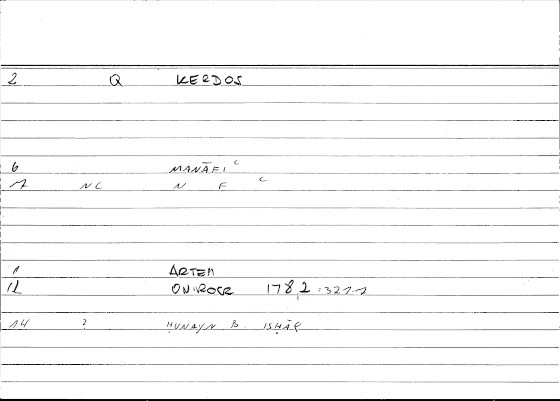 2 Q KERDOS
6 MANĀFIᶜ
7 NC N F ᶜ
1 ARTEM
12 ONIROCR 178,2
14 ? ḤUNAYN B. ISḤĀQ